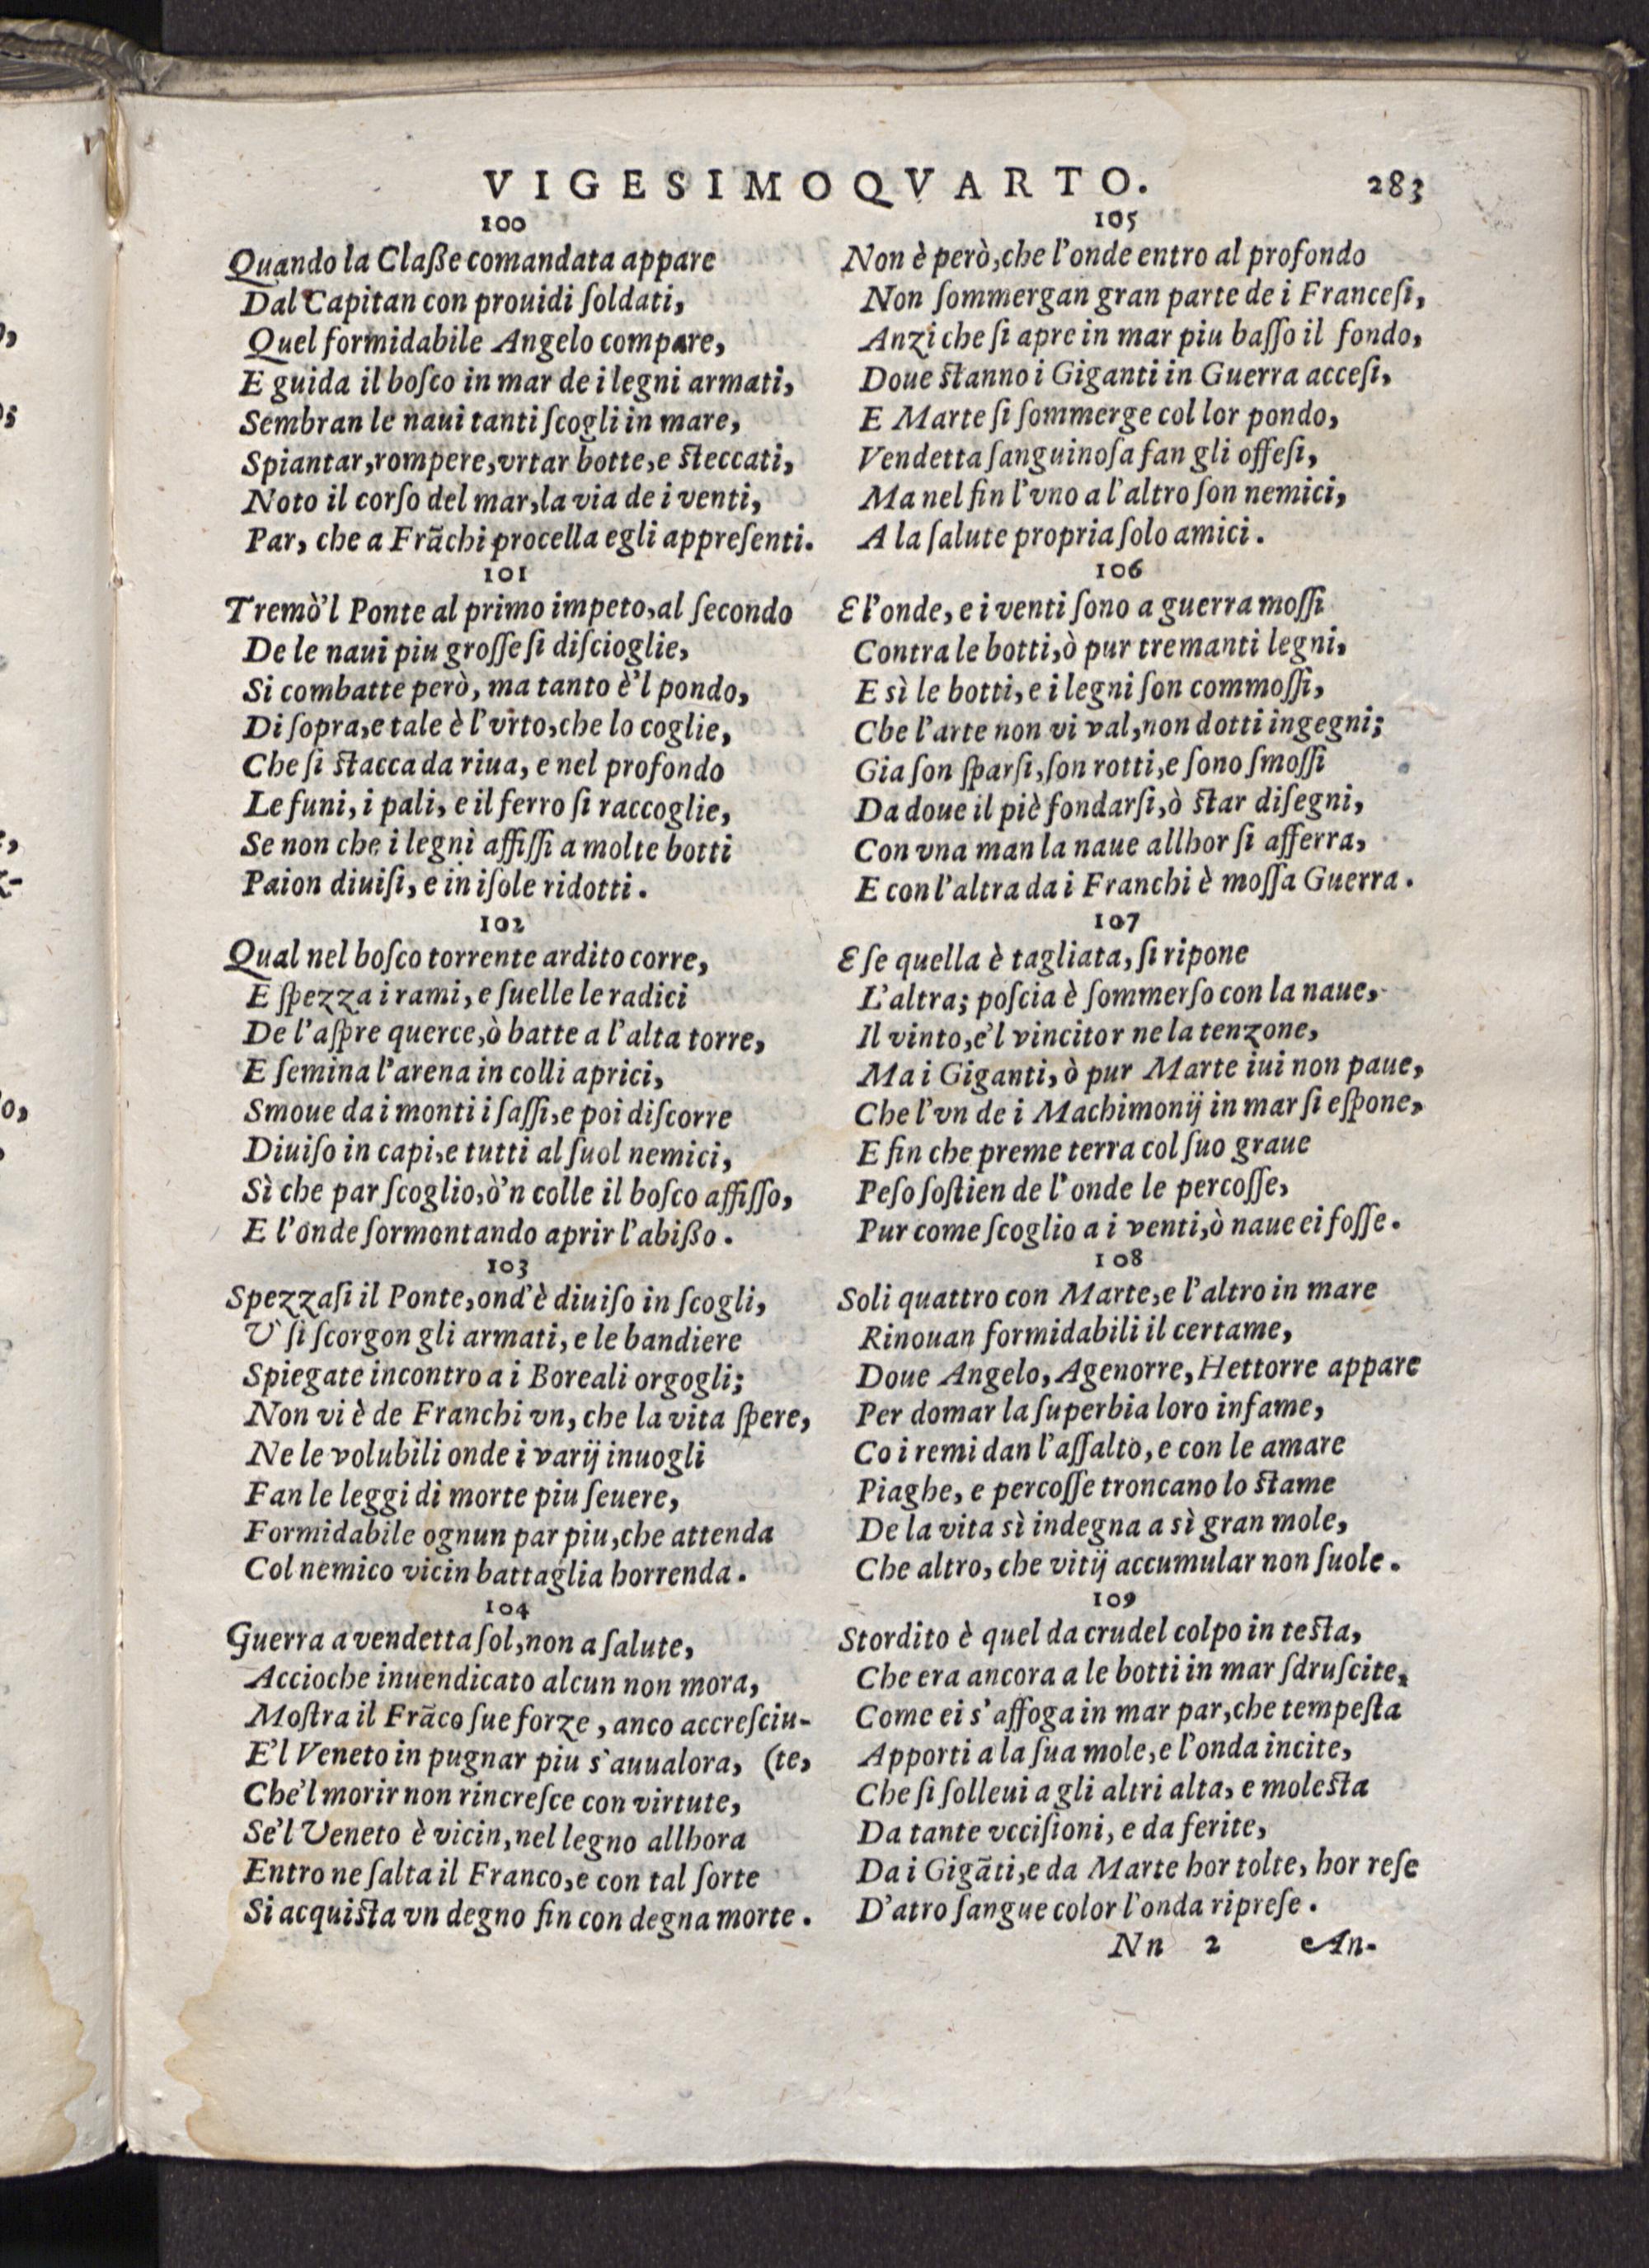 VIGESIMOQVARTO. 283
100
Quando la Claße comandata appare
Dal Capitan con prouidi ſoldati,
Quel formidabile Angelo compare,
E guida il boſco in mar de i legni armati,
Sembran le naui tanti ſcogli in mare,
Spiantar, rompere, vrtar botte, e ſteccati,
Noto il corſo del mar, la via de i venti,
Par, che a Frãchi procella egli appreſenti.
101
Tremò'l Ponte al primo impeto, al ſecondo
De le naui piu groſſe ſi diſcioglie,
Si combatte però, ma tanto è'l pondo,
Di ſopra, e tale è l'vrto, che lo coglie,
Che ſi ſtacca da riua, e nel profondo
Le funi, i pali, e il ferro ſi raccoglie,
Se non che i legni affiſſi a molte botti
Paion diuiſi, e in iſole ridotti.
102
Qual nel boſco torrente ardito corre,
E ſpezza i rami, e ſuelle le radici
De l'aſpre querce, ò batte a l'alta torre,
E ſemina l'arena in colli aprici,
Smoue da i monti i ſaſſi, e poi diſcorre
Diuiſo in capi, e tutti al ſuol nemici,
Sì che par ſcoglio, ò'n colle il boſco affiſſo,
E l'onde ſormontando aprir l'abißo.
103
Spezzaſi il Ponte, ond'è diuiſo in ſcogli,
V' ſi ſcorgon gli armati, e le bandiere
Spiegate incontro a i Boreali orgogli;
Non vi è de Franchi vn, che la vita ſpere,
Ne le volubili onde i varij inuogli
Fan le leggi di morte piu ſeuere,
Formidabile ognun par piu, che attenda
Col nemico vicin battaglia horrenda.
104
Guerra a vendetta ſol, non a ſalute,
Accioche inuendicato alcun non mora,
Moſtra il Frãco ſue forze, anco accreſciu-
E'l Veneto in pugnar piu s'auualora, (te,
Che'l morir non rincreſce con virtute,
Se'l Veneto è vicin, nel legno allhora
Entro ne ſalta il Franco, e con tal ſorte
Si acquiſta vn degno fin con degna morte.
105
Non è però, che l'onde entro al profondo
Non ſommergan gran parte de i Franceſi,
Anzi che ſi apre in mar piu baſſo il fondo,
Doue ſtanno i Giganti in Guerra acceſi,
E Marte ſi ſommerge col lor pondo,
Vendetta ſanguinoſa fan gli offeſi,
Ma nel fin l'vno a l'altro ſon nemici,
A la ſalute propria ſolo amici.
106
E l'onde, e i venti ſono a guerra moſſi
Contra le botti, ò pur tremanti legni,
E sì le botti, e i legni ſon commoſſi,
Che l'arte non vi val, non dotti ingegni;
Gia ſon ſparſi, ſon rotti, e ſono ſmoſſi
Da doue il piè fondarſi, ò ſtar diſegni,
Con vna man la naue allhor ſi afferra,
E con l'altra da i Franchi è moſſa Guerra.
107
E ſe quella è tagliata, ſi ripone
L'altra; poſcia è ſommerſo con la naue,
Il vinto, e'l vincitor ne la tenzone,
Ma i Giganti, ò pur Marte iui non paue,
Che l'vn de i Machimonij in mar ſi eſpone,
E fin che preme terra col ſuo graue
Peſo ſoſtien de l'onde le percoſſe,
Pur come ſcoglio a i venti, ò naue ei foſſe.
108
Soli quattro con Marte, e l'altro in mare
Rinouan formidabili il certame,
Doue Angelo, Agenorre, Hettorre appare
Per domar la ſuperbia loro infame,
Co i remi dan l'aſſalto, e con le amare
Piaghe, e percoſſe troncano lo ſtame
De la vita sì indegna a sì gran mole,
Che altro, che vitij accumular non ſuole.
109
Stordito è quel da crudel colpo in teſta,
Che era ancora a le botti in mar ſdruſcite,
Come ei s'affoga in mar par, che tempeſta
Apporti a la ſua mole, e l'onda incite,
Che ſi ſolleui a gli altri alta, e moleſta
Da tante vcciſioni, e da ferite,
Da i Gigãti, e da Marte hor tolte, hor reſe
D'atro ſangue color l'onda ripreſe.
Nn 2 An-